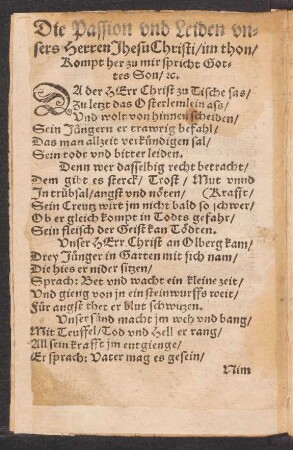 Die Passion vnd Leiden vn-
sers Herren Jhesu Christi/ im thon/
Kompt her zu mir spricht Got-
tes Son/ ꝛc.
DA der HErr Christ zu Tische sas/
Zu letzt das Osterlemlein ass/
Vnd wolt von hinnen scheiden/
Sein Jüngern er trawrig befahl/
Das man allzeit verkündigen sal/
Sein todt vnd bitter leiden.
Denn wer dasselbig recht betracht/
Dem gibt es sterck/ Trost/ Mut vnnd
In trübsal/ angst vnd nöten/ (Krafft/
Sein Creutz wirt jm nicht bald so schwer/
Ob er gleich kompt in Todts gefahr/
Sein fleisch der Geist kan Tödten.
Vnser HErr Christ an Olberg kam/
Drey Jünger in Garten mit sich nam/
Die hies er nider sitzen/
Sprach: Bet vnd wacht ein kleine zeit/
Vnd gieng von jn ein steinwurffs weit/
Für angst thet er blut schwitzen.
Vnser sünd macht jm weh vnd bang/
Mit Teuffel/ Tod vnd Hell er rang/
All sein krafft jm entgienge/
Er sprach: Vater mag es gesein/
Nim